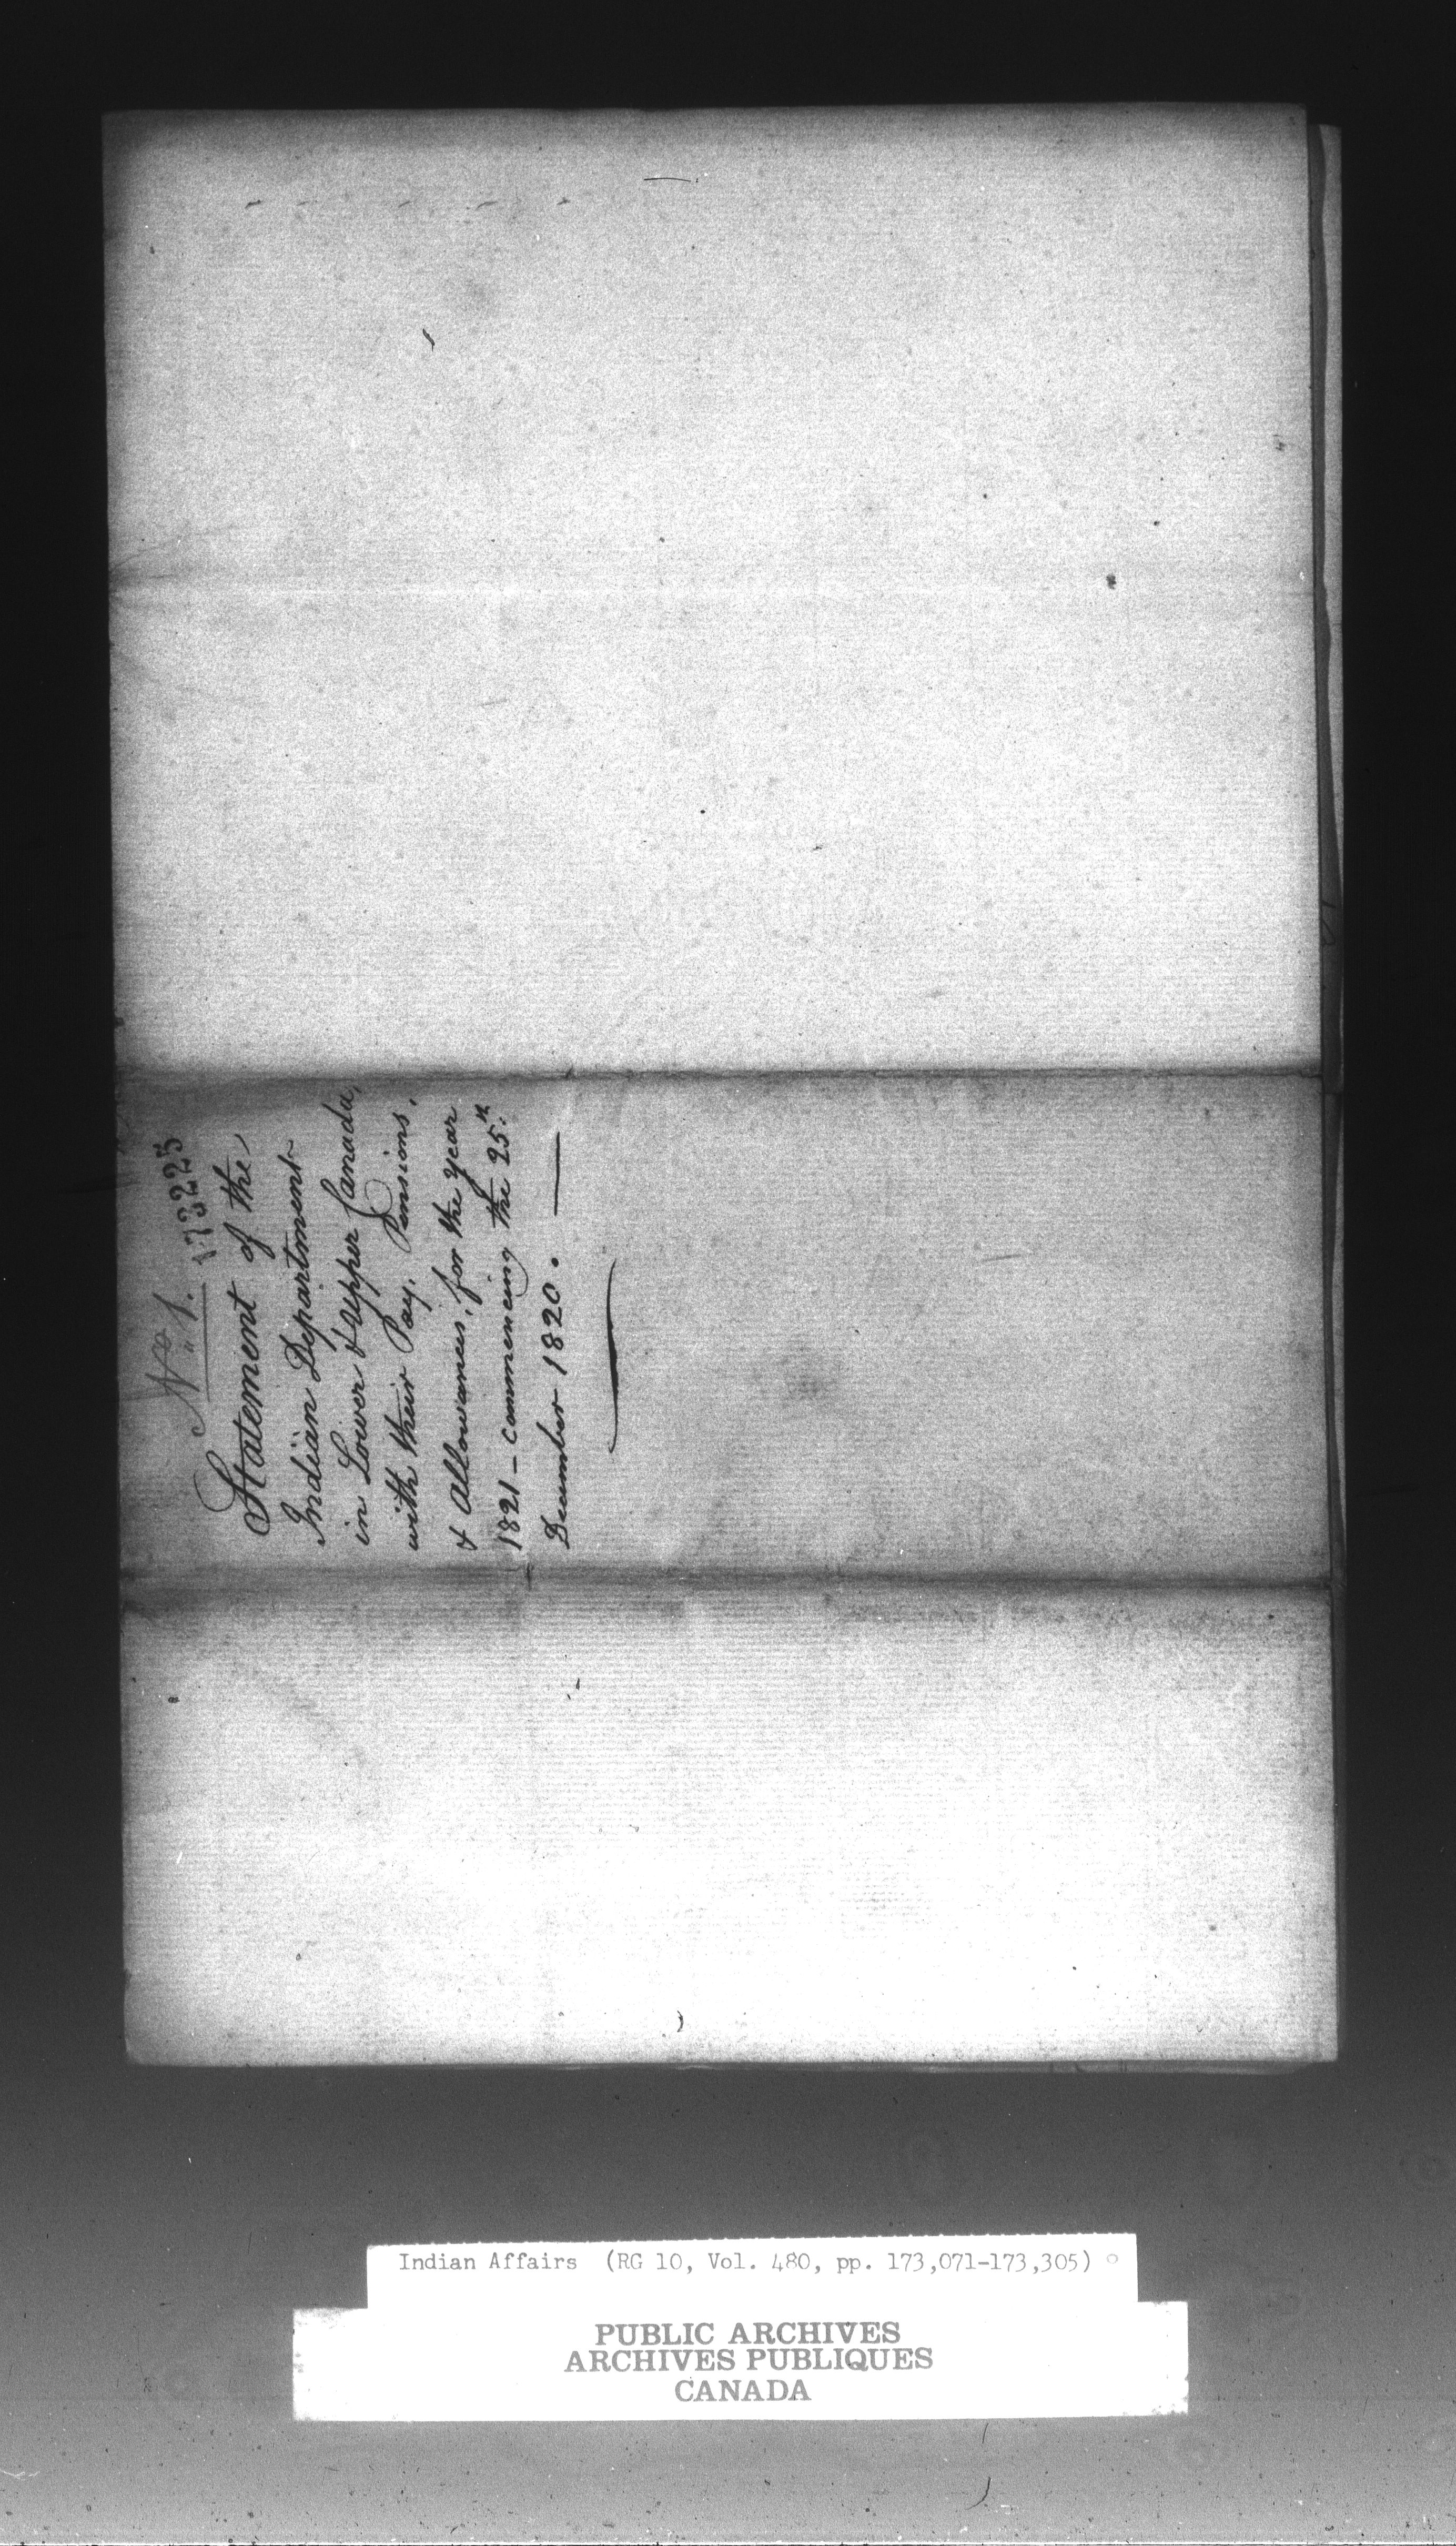 No. 1.
173225
Statement of the
Indian Department
in Lower & Upper Canada,
with their Pay, Pensions,
& Allowances, for the year
1821 - commencing the 25.th
December 1820. —
Indian Affairs (RG 10, Vol. 480, pp. 173,071-173,305)
PUBLIC ARCHIVES
ARCHIVES PUBLIQUES
CANADA